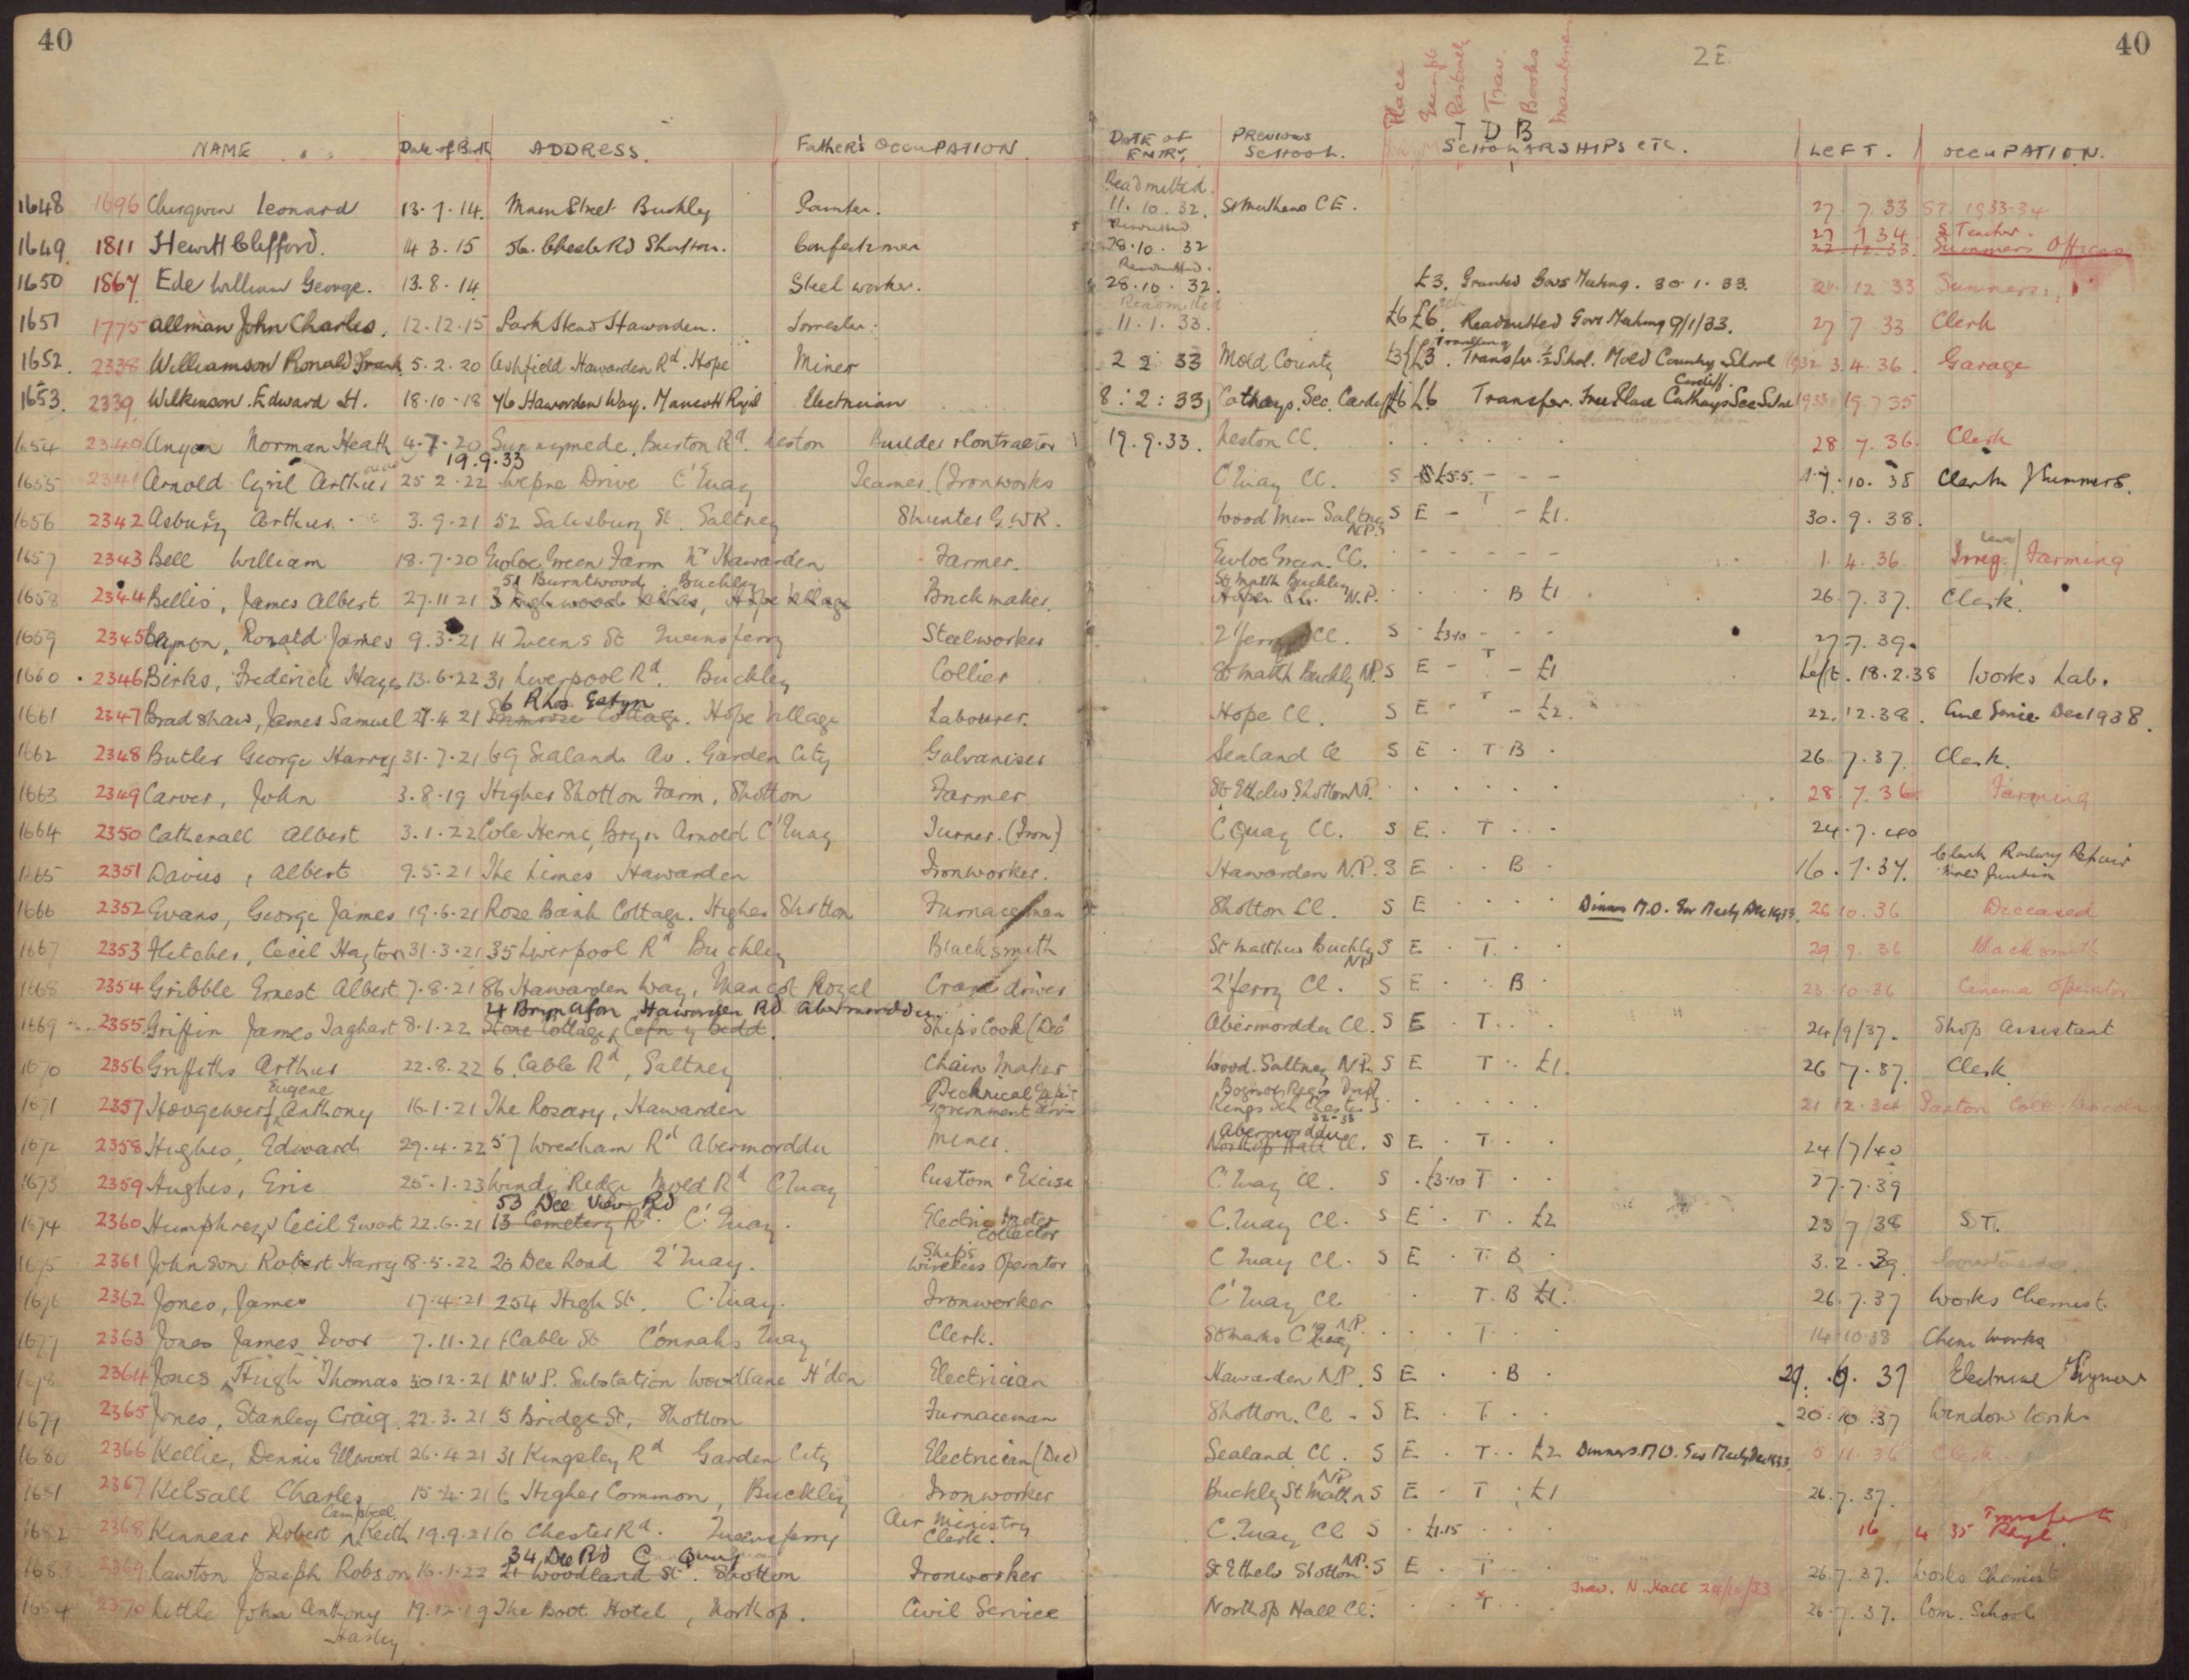 40
40
2E
Place
Trav.
Books
T D B
NAME
Date of Birth
ADDRESS.
Father's OCCUPATION
DATE OF ENTRY
PREVIOUS SCHOOL.
SCHOLARSHIPS ETC.
LEFT.
OCCUPATION.
1648 1696 Leonard 13.7.14. Main Street Buckley Painter. Readmitted. 11.10.32. St Matthews CE. 27.7.33 ST. 1933-34
1649. 1811 Hewitt Clifford. 14 3.15 Chester Rd Shotton. 28.10.32 27 7 34. S Teacher. 22.12.33. Summers Offices
1650 1867 Ede William George. 13.8.14 Steel worker. Readmitted. 28.10.32. £3. Granted Govs Meeting. 30.1.33. 12 33 Summers
1651 1775 Allman John Charles. 12.12.15 Hawarden. Readmitted 11.1.33. £6 £6. Readmitted Govs Meeting 9/1/33. 27 7 33 Clerk
1652. 2338 Williamson Ronald Frank 5.2.20 Ashfield Hawarden Rd. Hope Miner 2 2 33 Mold County £3 £3. Travelling Transfer ½ Schol. Mold County School 1932 3.4.36. Garage
1653. 2339 Wilkinson Edward H. 18.10.18 46 Hawarden Way. Mancott Royal Electrician 8:2:33 Cathays. Sec. Cardiff £6 £6 Transfer. Free Place Cathays Sec Cardiff. 1933 19 7 35
1654 2340 Anyon Norman Heath 4.7.20 Sunnymede, Burton Rd. Neston Builder & Contractor 19.9.33. Neston Cl. 28 7.36. Clerk
19.9.33
1655 2341 Arnold Cyril Arthur 25 2.22 Wepre Drive C'Quay Teamer. (Ironworks C'Quay Cl. S £5.5. - - - 17.10.38 Clerk J Summers.
1656 2342 Asbury Arthur. 3.9.21 52 Salisbury St. Saltney Shunter G.W.R. Wood Mem Saltney N.P. S E - T - £1. 30.9.38.
1657 2343 Bell William 18.7.20 Ewloe Green Farm Nr Hawarden Farmer. Ewloe Green. Cl. 1.4.36. Farming
1658 2344 Bellis, James Albert 27.11 21 51 Burntwood. Buckley Brickmaker. St Matth Buckley N.P. B £1 26.7.37. Clerk.
1659 2345 Ronald James 9.3.21 11 Queens St Queensferry Steelworker Q'ferry Cl. S £3.10 - - 27.7.39.
1660 2346 Birks, Frederick Hayes 13.6.22 31 Liverpool Rd. Buckley Collier St Matth Buckley N.P. S E - T - £1 Left. 18.2.38 Works Lab.
1661 2347 Bradshaw, James Samuel 27.4 21 6 Rhos Estyn Primrose Cottage. Hope Village Labourer. Hope Cl. S E - T - £2. 22.12.38. Civil Service Dec 1938.
1662 2348 Butler George Harry 31.7.21 69 Sealand Av. Garden City Galvaniser Sealand Cl S E . T.B . 26 7.37. Clerk.
1663 2349 Carver, John 3.8.19 Higher Shotton Farm, Shotton Farmer St Ethelws. Shotton N.P. 28.7.36. Farming
1664 2350 Catherall Albert 3.1.22 Cole Herne, Bryn Arnold C'Quay Turner. (Iron) C'Quay Cl. S E. T . . 24.7.40
1665 2351 Davies, Albert 9.5.21 The Limes Hawarden Ironworker. Hawarden N.P. S E . . B . 16.7.37. Clerk Railway Repair Mold Junction
1666 2352 Evans, George James 19.6.21 Rose Bank Cottage. Higher Shotton Furnaceman Shotton Cl. S E . . . . Dinners M.O. Gov Meeting Dec 1933. 26 10.36 Deceased
1667 2353 Fletcher, Cecil Hayton 31.3.21 35 Liverpool Rd Buckley Blacksmith St Matthew Buckley NP S E . T. . 29 9. 36 Blacksmith
1668 2354 Gribble Ernest Albert 7.8.21 86 Hawarden Way, Mancot Royal Crane driver Q'ferry Cl. S E . . B . 23.10.36 Cinema Operator
1669 2355 Griffin James Taghart 8.1.22 4 Bryn Afon Hawarden Rd Abermorddu Ship's Cook (Decd Abermorddu Cl. S E . T . . 24/9/37. Shop Assistant
1670 2356 Griffiths Arthur 22.8.22 6, Cable Rd, Saltney Chain Maker Wood. Saltney N.P. S E T . £1. 26 7.37. Clerk
1671 2357 Hoogewerf Eugene Anthony 16.1.21 The Rosary, Hawarden Kings Sch Chester 21 12.34
1672 2358 Hughes, Edward 29.4.22 57 Wrexham Rd Abermorddu Miner. Abermorddu Northop Hall Cl. S E . T . . 24/7/40
1673 2359 Hughes, Eric 25.1.23 Windy Ridge Mold Rd C'Quay Custom & Excise C'Quay Cl. S . £3.10 T . . 27.7.39
1674 2360 Humphreys Cecil Ewart 22.6.21 53 Dee View Rd 13 Cemetery Rd. C. Quay. Electric Meter Collector C.Quay Cl. S E . T . £2 23 7 38 S T.
1675 2361 Johnson Robert Harry 18.5.22 20 Dee Road C'Quay. Ship's Wireless Operator C Quay Cl. S E . T. B . 3.2.39.
1676 2362 Jones, James 17.4.21 254 High St. C.Quay. Ironworker C'Quay Cl . T. B £1. 26.7.37 Works Chemist.
1677 2363 Jones James Ivor 7.11.21 1 Cable St Connahs Quay Clerk. St Marks C'Quay N.P. . . . T . . 14 10 38 Chem works
1678 2364 Jones, Hugh Thomas 30 12.21 N W P. Substation Woodlane H'den Electrician Hawarden N.P. S E . . B . 29. 9. 37
1679 2365 Jones, Stanley Craig. 22.3.21 5 Bridge St, Shotton Furnaceman Shotton. Cl. S E . T . . 20.10.37 Window works
1680 2366 Kellie, Dennis Ellwood 26.4 21 31 Kingsley Rd Garden City Electrician (Dec) Sealand Cl. S E . T . . £2 Dinners M.O. Gov Meeting Dec 1933. 5 11.36 Clerk.
1681 2367 Kelsall Charles 15.4.21 6 Higher Common, Buckley Ironworker Buckley St Matth NP S E . T . £1 26.7.37.
1682 2368 Kinnear Robert Campbell Keith 19.9.21 10 Chester Rd. Queensferry Air Ministry Clerk. C.Quay Cl S . £1.15 . . . 16 4 35 Transfer to Rhyl.
1683 2369 Lawton Joseph Robson 16.1.22 34 Dee Rd C Quay 21 Woodland St. Shotton Ironworker St Ethelw Shotton N.P. S E . T . . 26.7.37. Works Chemist
1684 2370 Little John Anthony Harley 19.12.19 The Boot Hotel, Northop. Civil Service Northop Hall Cl. . . T . . Trav. N. Hall 24/10/33 26.7.37. Com. School